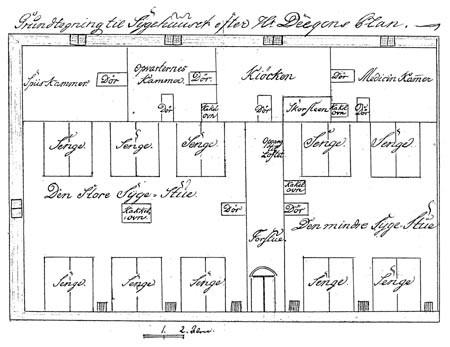 Grundtegning til Sygehuuset efter Hr Deegens Plan.
Spiis kammer.
Dör
Opvarternes Kammer.
Dör.
Klöcken
Dör
Medicin Kamer
Dör
Kakel ovn
Dör
Skorsteen
Kakel ovn
Dör
Senge.
Senge.
Senge.
Opgang til Loftet
Senge.
Senge.
Den Store Syge-Stue
Kakkel ovn
Dör
Kakel ovn
Dör
Den mindre Syge-Stue
Forstue.
Senge.
Senge.
Senge.
Senge.
Senge.
1. 2. Alen.